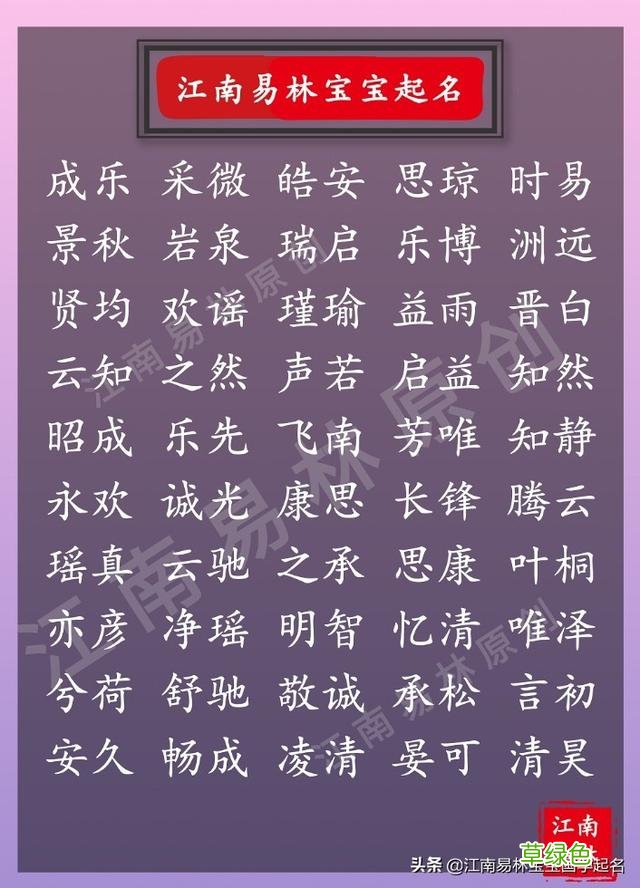 江南易林宝宝起名
成乐 采微 皓安 思琼 时易
景秋 岩泉 瑞启 乐博 洲远
贤均 欢谣 瑾瑜 益雨 晋白
云知 之然 声若 启益 知然
昭成 乐先 飞南 芳唯 知静
永欢 诚光 康思 长锋 腾云
瑶真 云驰 之承 思康 叶桐
亦彦 净瑶 明智 忆清 唯泽
兮荷 舒驰 敬诚 承松 言初
安久 畅成 凌清 晏可 清昊
江南易林原创
江南易林原创
江南易林原创
江南
草绿色
头条 @江南易林宝宝国学起名